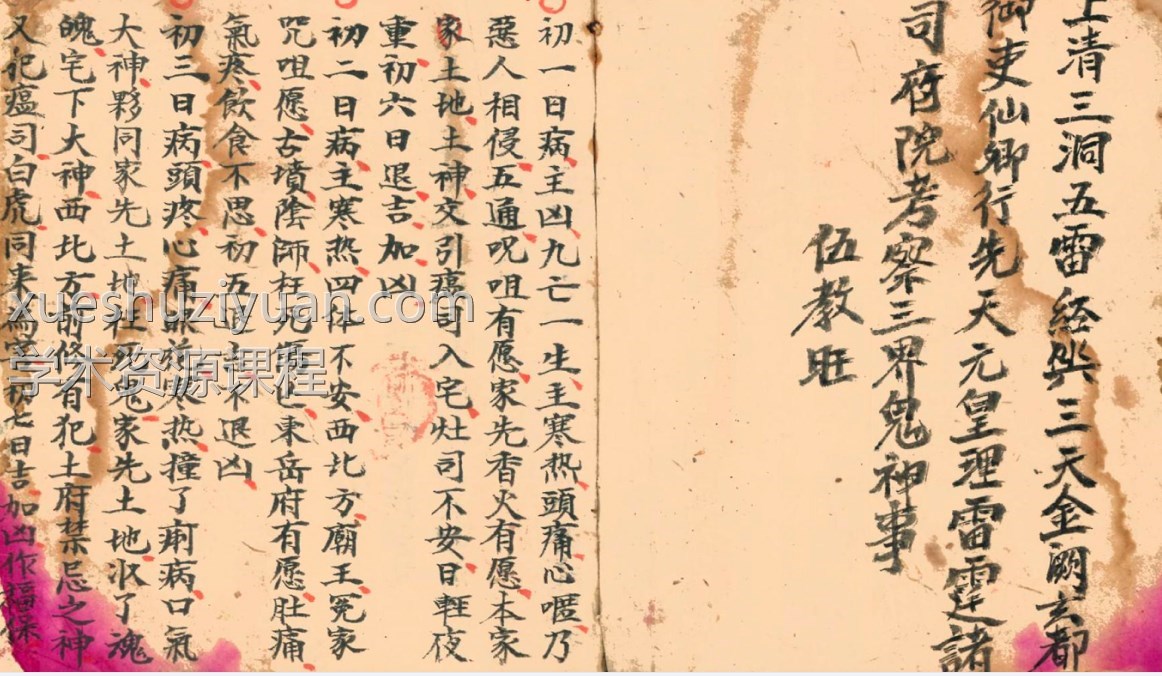 上清三洞五雷經𱁬三天金闕玄都
御史仙卿行先天元皇理雷霆諸
司府院考察三界鬼神事
伍教旺
初一日病主凶九亡一生主寒热頭痛心嘔乃
惡人相侵五通呪咀有愿家先香火有愿本家
家土地土神交引瘟司入宅灶司不安日輕夜
重初六日退吉加凶
初二日病主寒热四体不安西北方廟王冤家
咒咀愿古墳陰師枉死
東岳府有愿肚痛
氣疼飲食不思初五
不退凶
初三日病頭疼心痛
寒热撞了痢病口氣
大神夥同家先土地
家先土地收了魂
魄宅下大神西北方前修有犯土府禁忌之神
又犯瘟司白虎同来
七日吉加凶作福保
xueshuziyuan.com
学术资源课程